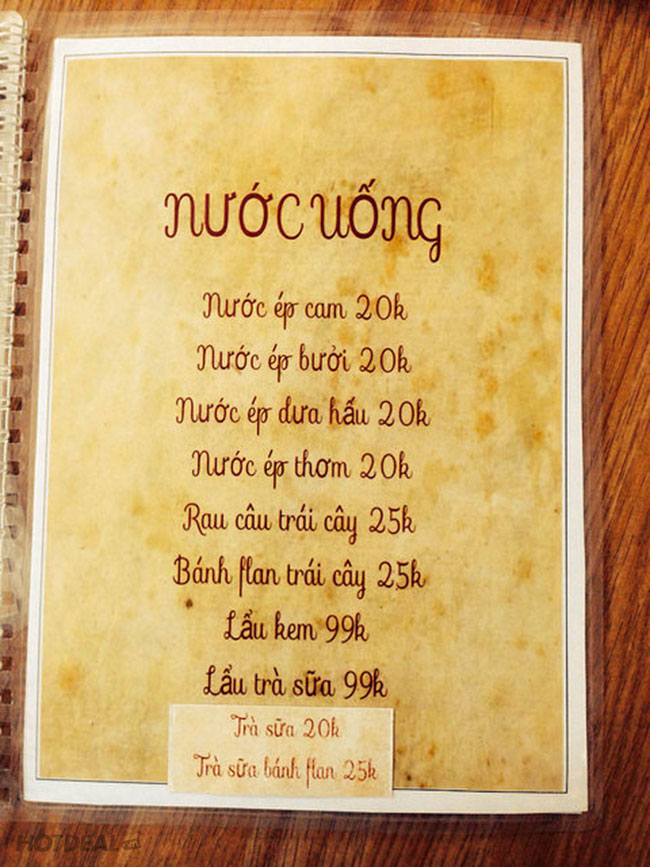 NƯỚC UỐNG
Nước ép cam 20k
Nước ép bưởi 20k
Nước ép dưa hấu 20k
Nước ép thơm 20k
Rau câu trái cây 25k
Bánh flan trái cây 25k
Lẩu kem 99k
Lẩu trà sữa 99k
Trà sữa 20k
Trà sữa bánh flan 25k
HOTDEAL